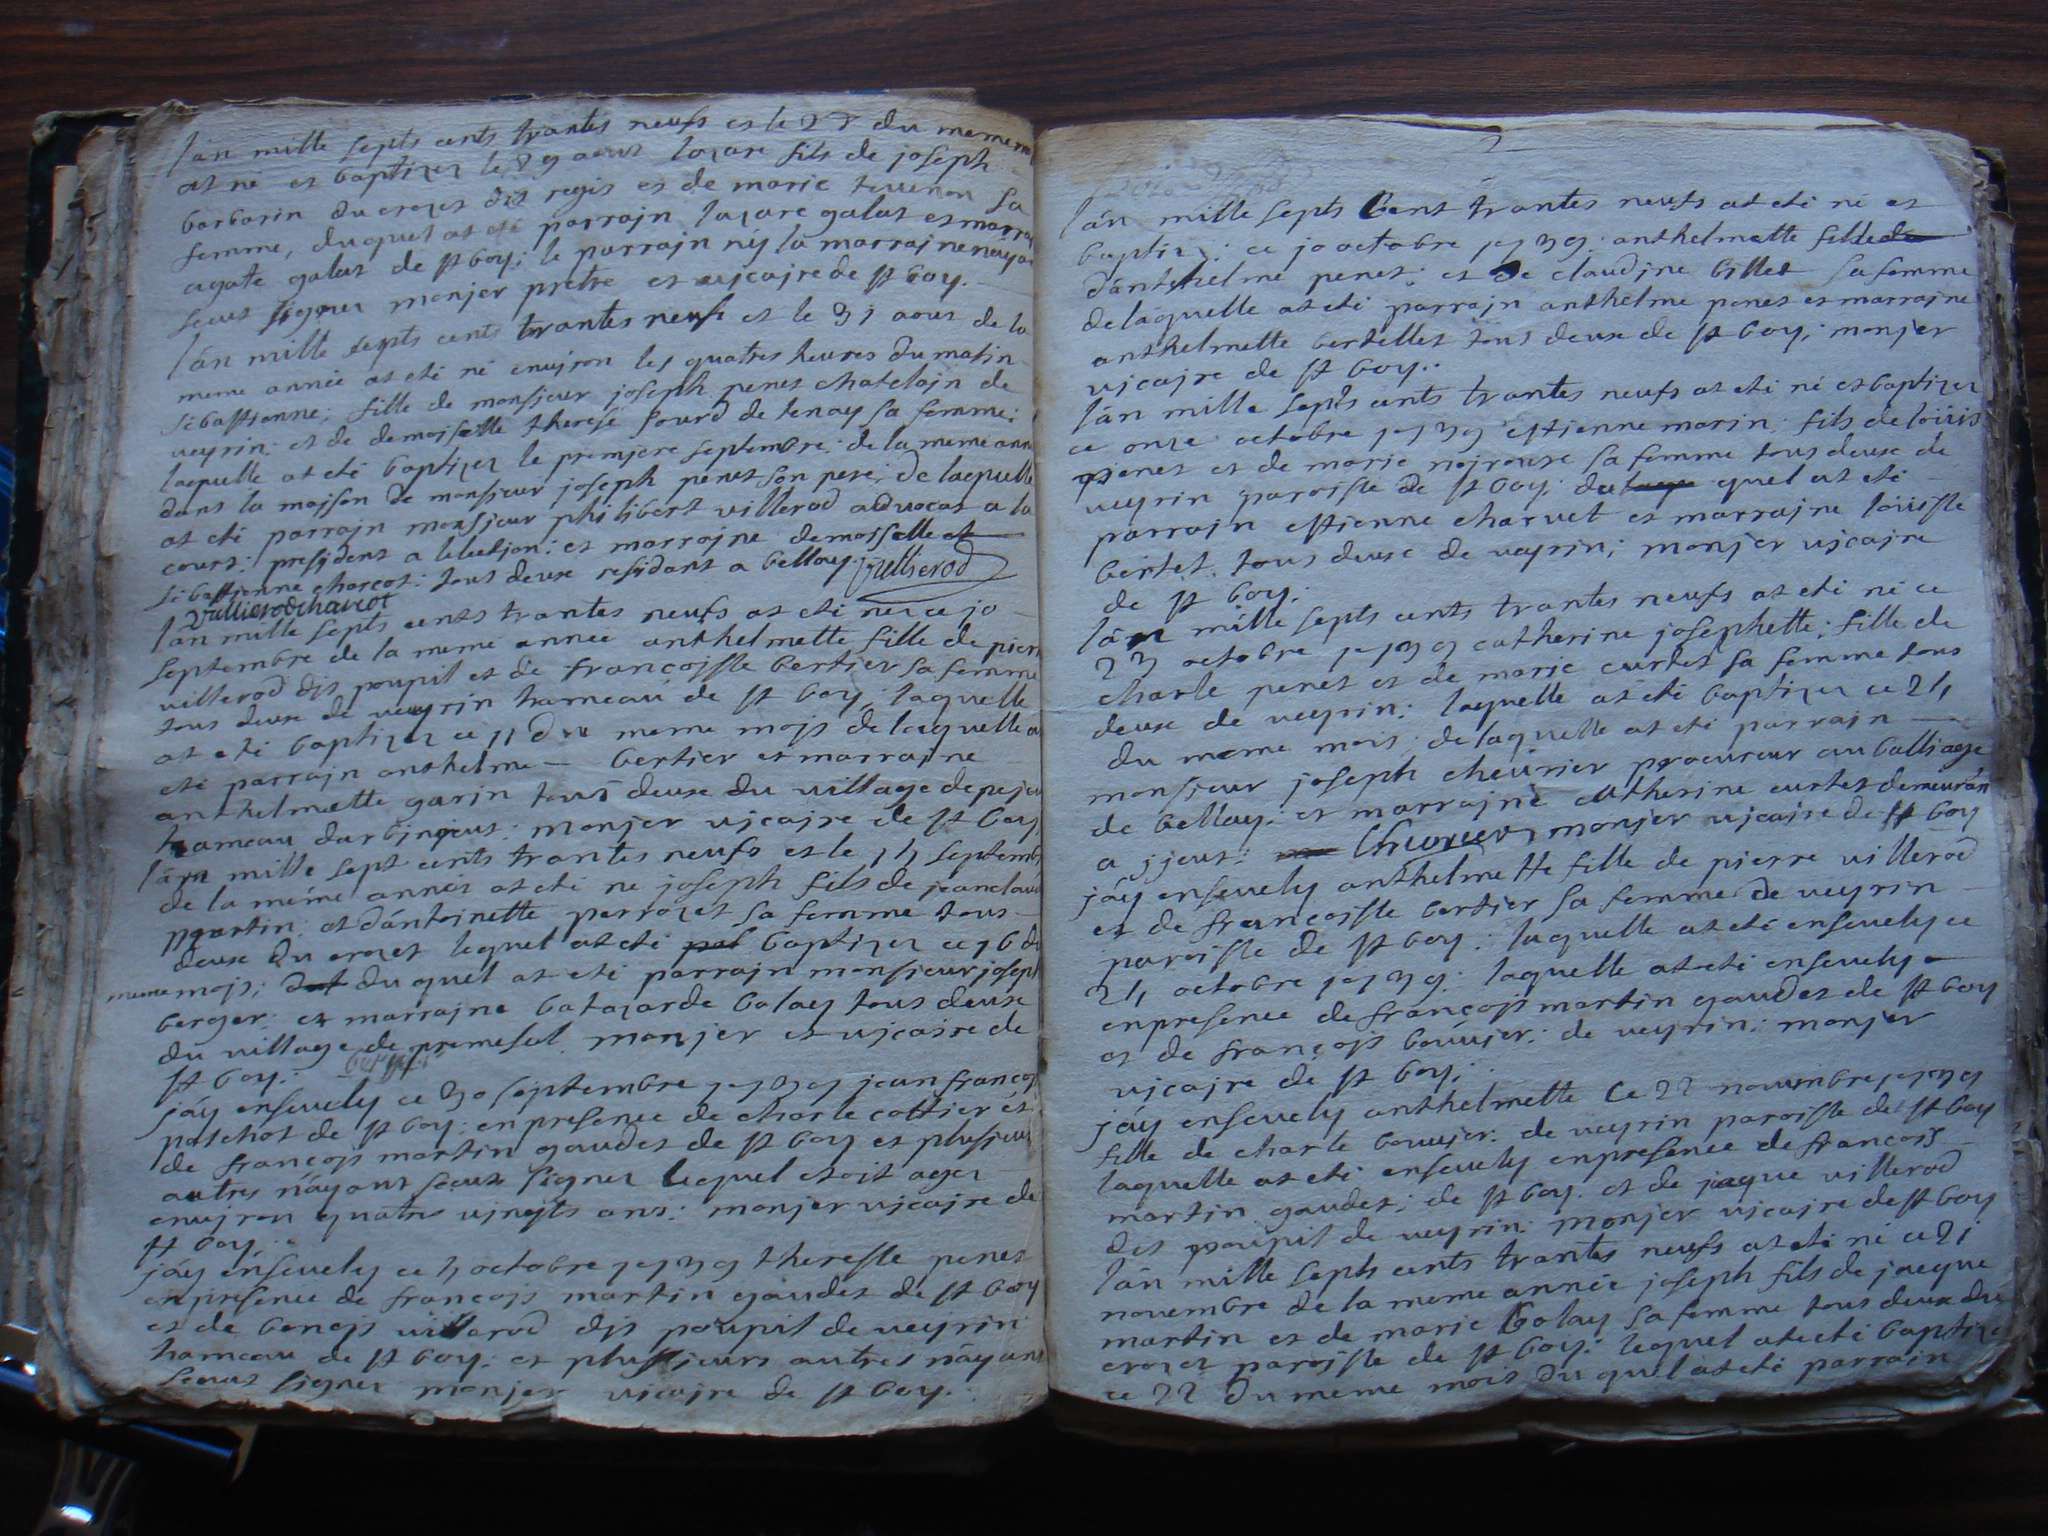 lan mille septs cents trantes neufs et le 28 du meme
at né et baptizez le 29 aout lazare fils de joseph
barbarin du crozet dit regis et de marie tevenon sa
femme, duquel at eté parrain lazare galat et marr
agate galat de st boy; le parrain ny la marraine nayan
sceut signer monjer pretre et vjcaire de st boy.
lán mille septs cents trantes neufs et le 31 aout de la
meme année at eté né environ les quatres heures du matin
sebastienne; fille de monsieur joseph penet chatelajn de
veyrin; et de demoiselle therese fourd de tenay sa femme;
laquelle at eté baptizez le premjere septembre; de la meme ann
dans la maison de monsieur joseph penet son pere; de laquelle
at eté parrain monsjeur philibert villerod advocat a la
court; president a lelectjon; et marrajne demoiselle et
sebastjenne charcot; tous deux residant a bellay; Vullierod
Vullierod charcot
lan mille septs cents trantes neufs at eté nez ce 10
septembre de la meme année anthelmette fille de pierr
villerod djt poupit et de francoisse bertier sa femme
tous deux de veyrin hameau de st boy; laquelle
at eté baptizez ce 11 du meme mojs de laquelle a
eté parrain anthelme bertier et marrajne
anthelmette garin tous deux du village de pejeu
hameau darbignieux; monjer vjcajre de st boy
lán mille sept cents trantes neufs et le 14 septemb
de la méme annéz at eté ne joseph fils de jeanclaud
martin; et dántoinette perrozet sa femme tous
deux du crozet lequel at eté pal baptizez ce 16 du
meme mojs; dat du quel at eté parrajn monsjeur joseph
berger; et marrajne batazarde balay tous deux
du village de premesel monjer et vjcaire de
st boy; berger
jáy ensevely ce 30 septembre 1739 jean françojs
patchot de st boy; enpresence de charle cottier et
de françojs martin gaudet de st boy et plusieurs
autres náyant sceut signer lequel etoit agez
envjron quatres vjngts ans; monjer vjcaire de
st boy.
jáy énsevely ce 5 octobre 1739 theresse penet
enpresence de françojs martin gaudet de st boy
et de benojs villerod djt poupit de veyrin
hameau de st boy; et plusieurs autres náyant
sceut signer monjer vicajre de st boy.
lán mille septs cent trantes neufs at eté né et
baptiz; ce 10 octobre 1739; anthelmette fille de
dánthelme penet; et de claudjne billet sa femme
delaquelle at eté parrajn anthelme penet et marrajne
anthelmette bertellet tous deux de st boy; monjer
vjcajre de st boy.
lán mille septs cents trantes neufs at eté né et baptizez
ce onze octobre 1739 estjenne marin; fils de loüis
penet et de marie nojroux sa femme tous deux de
veyrin paroisse de st boy; du quel at eté
parrajn estienne charvet et marrajne loüisse
bertet tous deux de veyrin; monjer vjcaire
de st boy;
lán mille septs cents trantes neufs at eté né ce
23 octobre 1739 catherine josephette; fille de
charle penet et de marie curtet sa femme tous
deux de veyrin; laquelle at eté baptizez ce 24
du meme mois; de laquelle at eté parrajn
monsjeur joseph chevrier procureur au balliage
de bellay; et marrajne catherine curtet demeurán
a jjeut; Chevrier; monjer vjcaire de st boy
jáy ensevely anthelmette fille de pierre villerod
et de françoisse bertier sa femme de veyrin
paroisse de st boy; laquelle at eté ensevely ce
24 octobre 1739; laquelle at eté ensevely
enpresence de françojs martin gaudet de st boy
et de françojs boüvjer; de veyrin; monjer
vjcajre de st boy;
jáy ensevely anthelmette ce 22 novembre 1739
fille de charle bouvjer; de veyrin paroisse de st boy
laquelle at eté ensevely enpresence de francois
martin gaudet; de st boy. et de jaque villerod
djt poupit de veyrin; monjer vjcajre de st boy
lán mille septs cents trantes neufs at eté né ce 21
novembre de la meme année joseph fils de jacque
martin et de marie Balay sa femme tous deux du
crozet paroisse de st boy; lequel at eté baptize
ce 22 du meme mois duquel at eté parrain